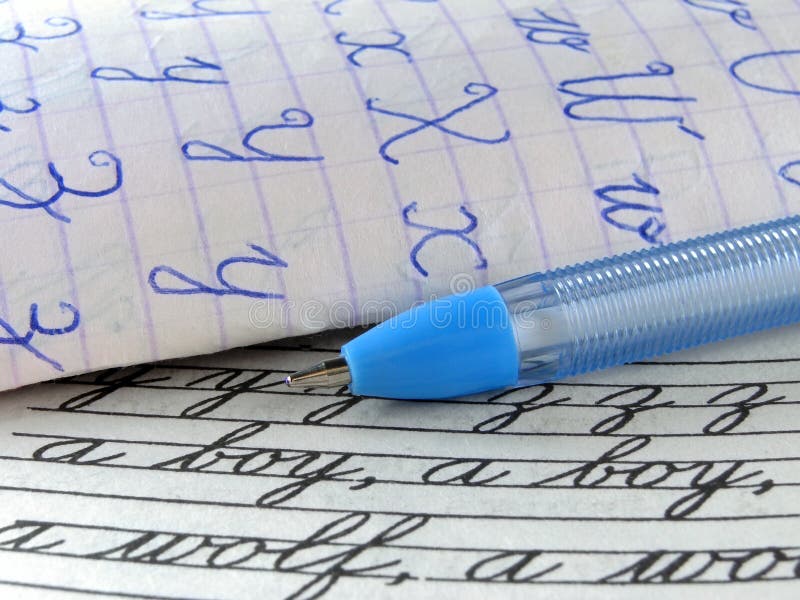 z y x w
Z y X W U
z y x w
y y y z z z
a boy, a boy,
a wolf, a wo